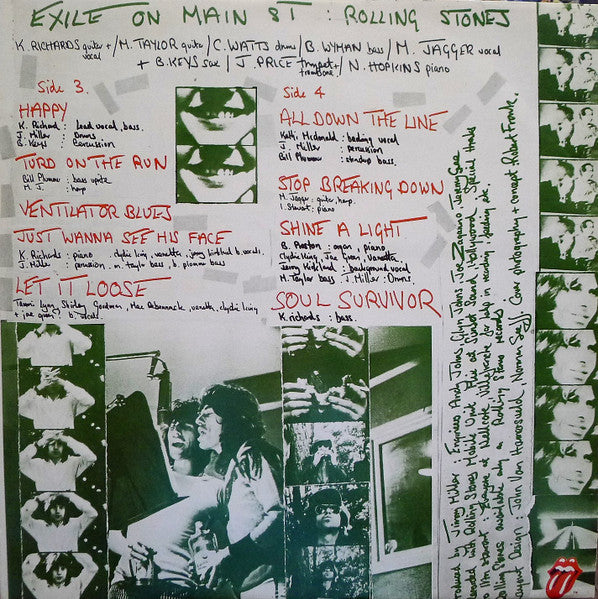 EXILE ON MAIN ST : ROLLING STONES
K. RICHARDS guitar + / M. TAYLOR guitar / C. WATTS drums / B. WYMAN bass / M. JAGGER vocal
vocal
+ B. KEYS sax / J. PRICE trumpet + / N. HOPKINS piano
trombone
Side 3.
HAPPY
K. Richard : Lead vocal, bass.
J. Miller : Drums
B. Keys : Percussion
TURD ON THE RUN
Bill Plummer : bass
M. J. : harp
VENTILATOR BLUES
JUST WANNA SEE HIS FACE
K. Richards : piano. clydie king, vanetta, jerry kirkland b. vocals.
J. Miller : percussion. m. taylor bass, b. plummer bass
LET IT LOOSE
Tammi Lynn, Shirley Goodman, Mac Rebennack, vanetta, clydie king
+ joe green : b. vocals
Side 4
ALL DOWN THE LINE
Kathi Mcdonald : backing vocal
J. Miller : percussion
Bill Plummer : standup bass.
STOP BREAKING DOWN
M. Jagger : guitar, harp.
I. Stewart : piano
SHINE A LIGHT
B. Preston : organ, piano
Clydie King, Joe Green, Vanetta,
Jerry Kirkland : background vocal
M. Taylor bass J. Miller : Drums.
SOUL SURVIVOR
K. richards : bass.
Produced by Jimmy Miller : Engineers Andy Johns, Glyn Johns, Joe Zagarino, Jeremy Gee
Recorded with Rolling Stones Mobile Unit. Mixed at Sunset Sound, Hollywood. Special thanks
to Ian Stewart : Everyone at Nellcote Villefranche for help in recording, feeding etc.,
Rolling Stones available only on Rolling Stones records
Layout Design : John Van Hamersveld / Norman Seeff Cover photography + concept Robert Frank.